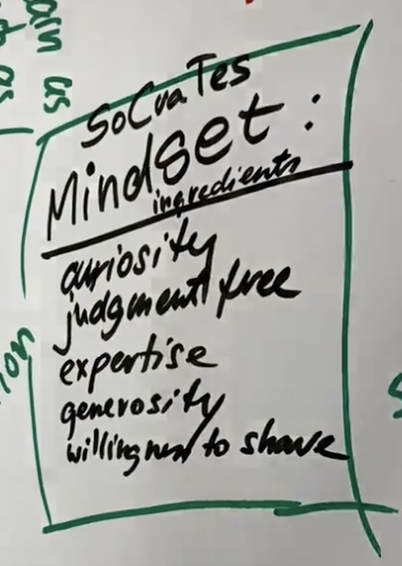 SoCraTes
Mindset:
ingredients
curiosity
judgment free
expertise
generosity
willingness to share